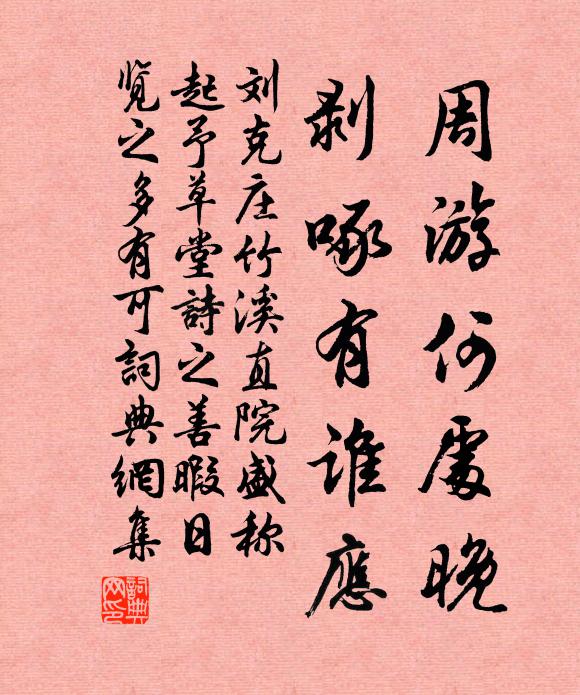 周游何處晚
剥啄有谁應
刘克庄竹溪直院盛称
起予草堂詩之善暇日
览之多有可詞典網集
詞典網印